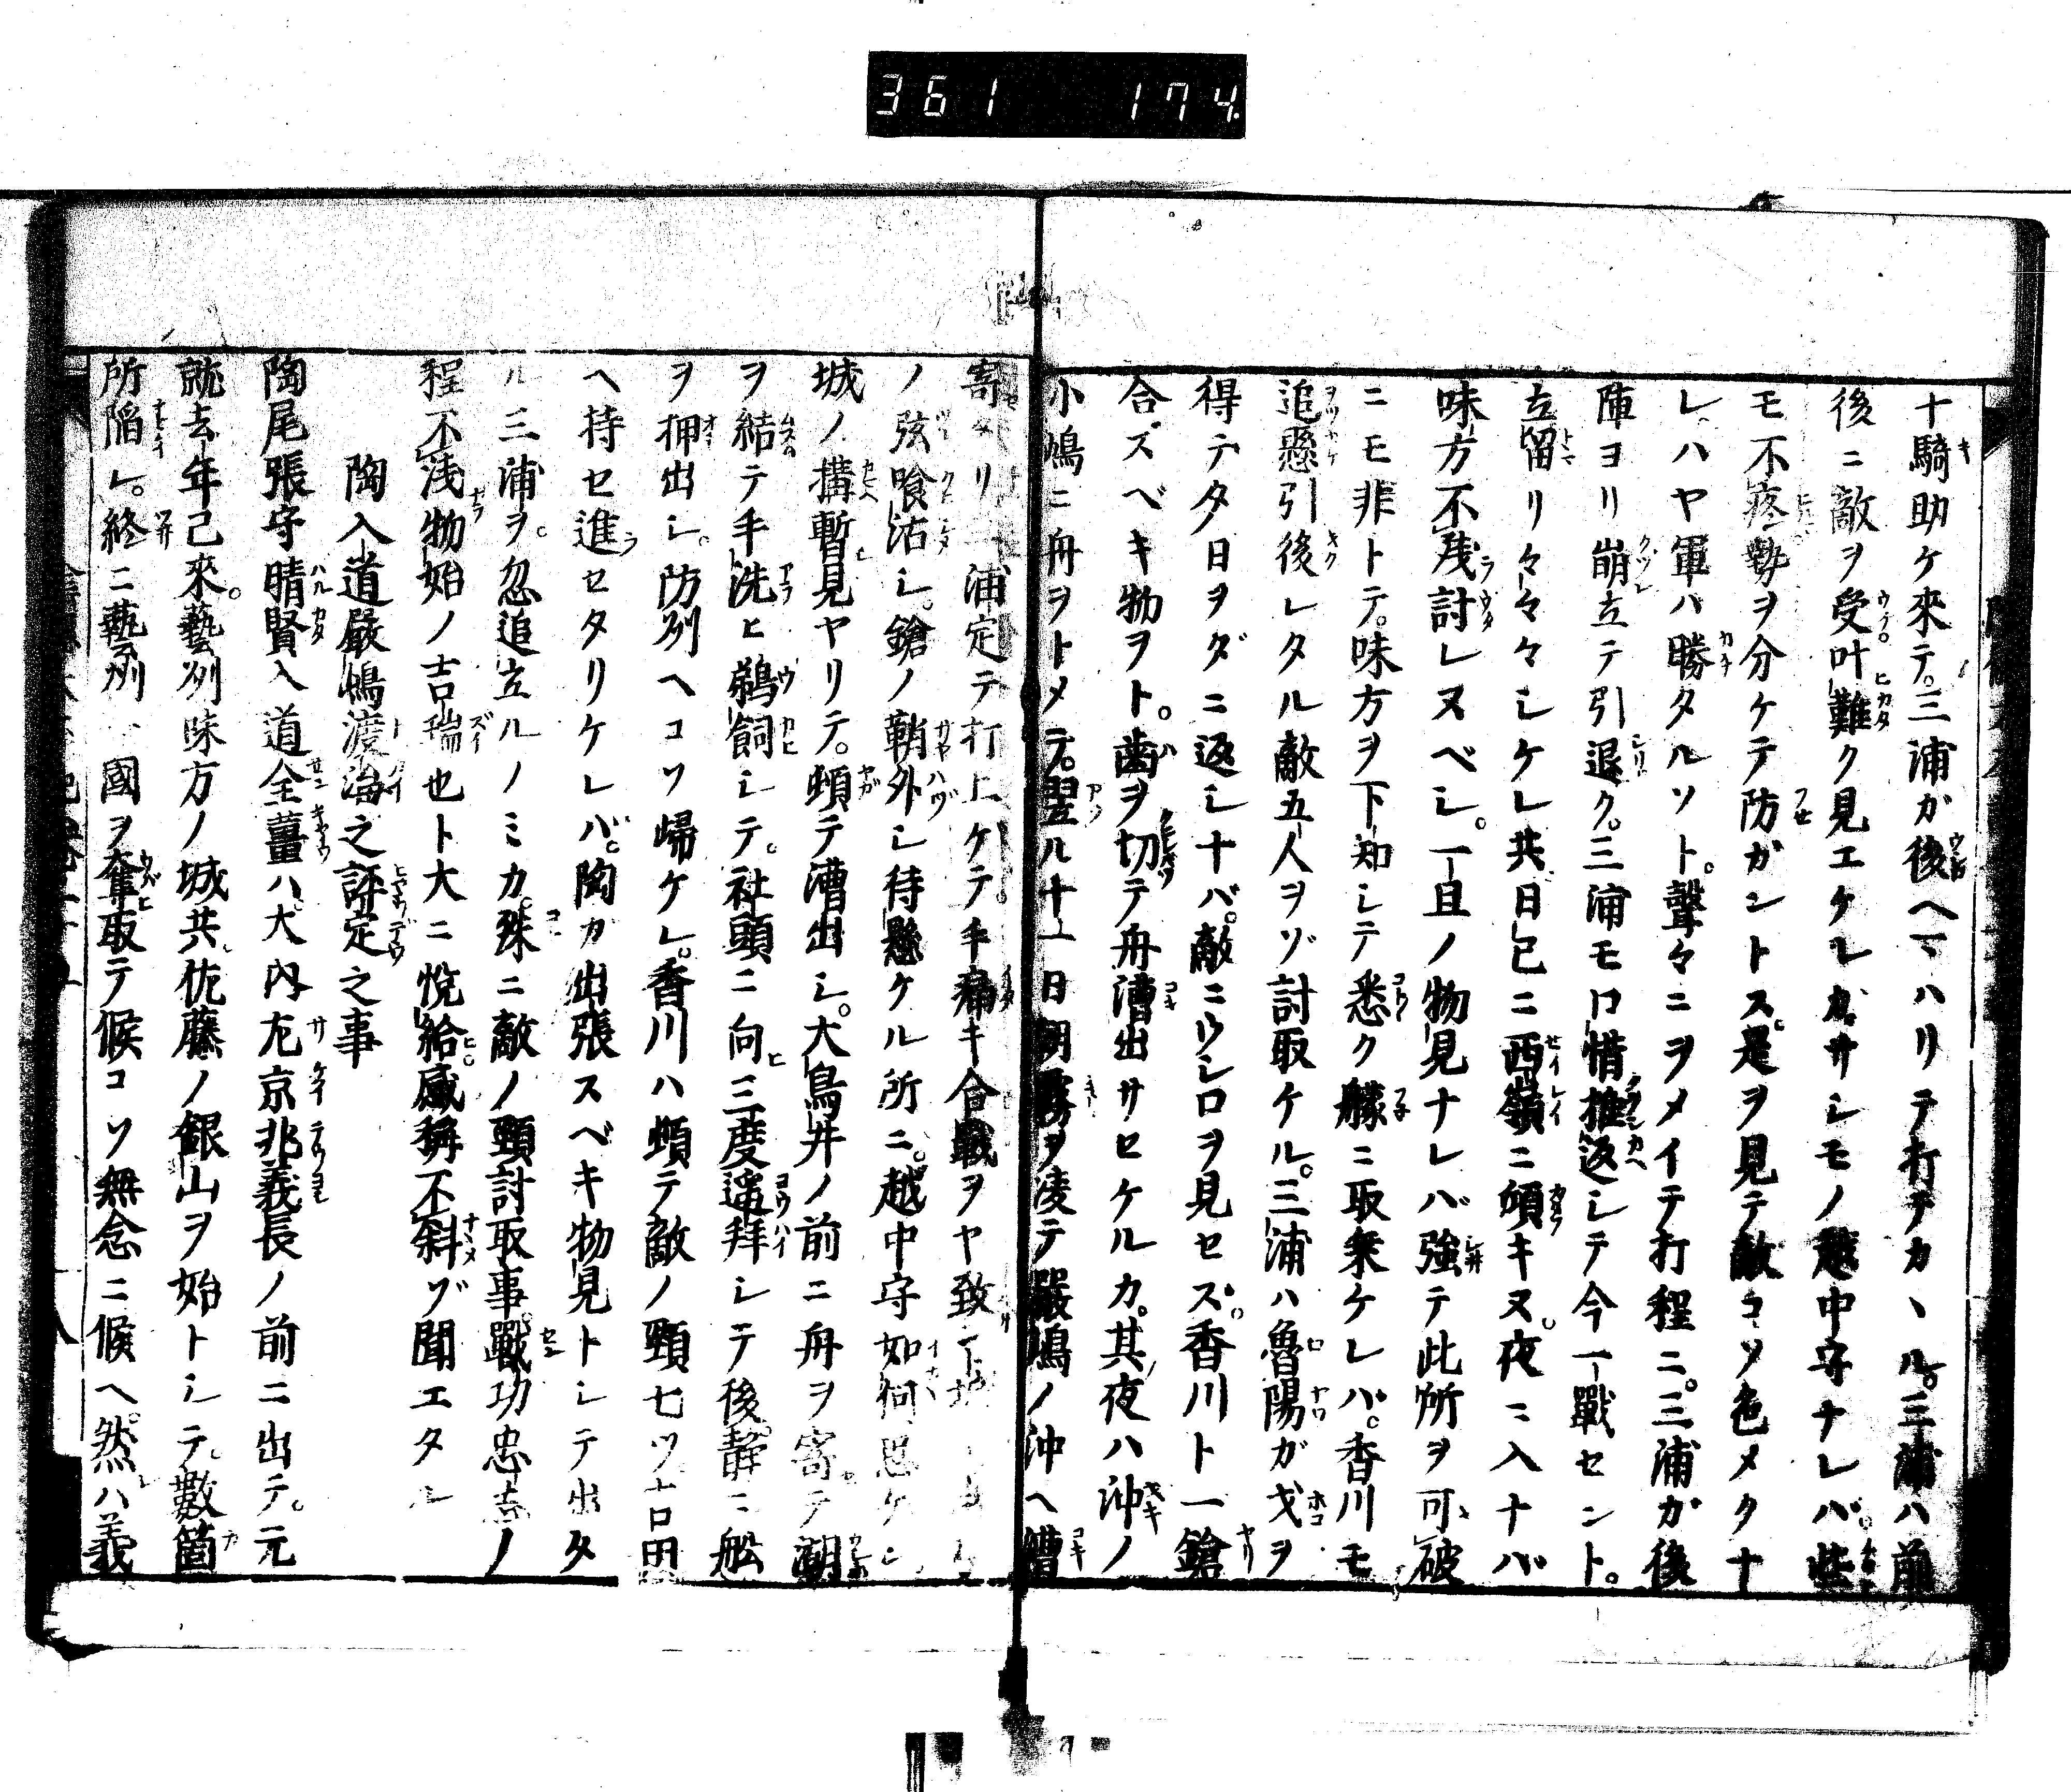 361 174.
十騎助ケ來テ。三浦ガ後ヘマハリテ打テカヽル。三浦ハ前
後ニ敵ヲ受叶難ク見エケレ共サシモノ越中守ナレバ些
モ不疼勢ヲ分ケテ防ガントス是ヲ見テ敵コソ色メタナ
レハヤ軍ハ勝タルソト。聲々ニヲメイテ打程ニ。三浦ガ後
陣ヨリ崩立テ引退ク。三浦モ口惜推返シテ今一戰セント。
立留リ々々々シケレ共日已ニ西嶺ニ傾キヌ。夜ニ入ナバ
味方不残討レヌベシ。一旦ノ物見ナレバ強テ此所ヲ可破
ニモ非トテ。味方ヲ下知シテ悉ク艨ニ取乗ケレバ。香川モ
追懸引後レタル敵五人ヲゾ討取ケル。三浦ハ魯陽ガ戈ヲ
得テ夕日ヲダニ返シナバ。敵ニウシロヲ見セズ。香川ト一鎗
合ズベキ物ヲト。歯ヲ切テ舟漕出サセケルカ。其夜ハ沖ノ
小嶋ニ舟ヲトメテ。翌ル十一日朝霧ヲ凌テ嚴嶋ノ沖ヘ漕
寄タリ三浦定テ打上ケテ手痛キ合戰ヲヤ致
ノ弦喰沾シ。鎗ノ鞘外シ待懸ケル所ニ。越中守如何思ケン
城ノ搆暫見ヤリテ。頓テ漕出シ。大鳥井ノ前ニ舟ヲ寄テ潮
ヲ結テ手洗ヒ鵜飼シテ。社頭ニ向三度遥拜シテ後。静ニ舩
ヲ押出シ。防刕ヘコソ歸ケレ。香川ハ頓テ敵ノ頸七ツ吉田
ヘ持セ進セタリケレバ。陶カ出張スベキ物見トシテ出タ
ル三浦ヲ。忽追立ルノミカ。殊ニ敵ノ頸討取事。戰功忠志ノ
程不浅物始ノ吉瑞也ト大ニ悦給感稱不斜ゾ聞エタル
陶入道嚴嶋渡海之評定之事
陶尾張守晴賢入道全薑ハ、大内左京兆義長ノ前ニ出テ。元
就去年已來。藝刕味方ノ城共佐藤ノ銀山ヲ始トシテ。數箇
所陥レ。終ニ藝刕一國ヲ奪取テ候コソ無念ニ候ヘ。然ハ義